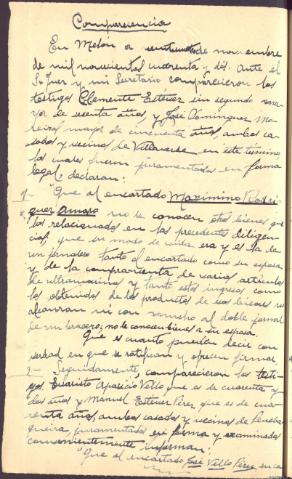 Comparecencia
En Melon a veintinueve de noviembre
de mil novecientos cuarenta y dos. Ante el
Sr Juez y mi Secretario comparecieron los
testigos Clemente Estévez sin segundo ma-
yor de sesenta años y José Dominguez Mo-
reiras mayor de cincuenta años, ambos ca-
sados y vecinos de en este término,
los cuales fueron juramentados en forma
legal y declaran:
1º- Que al encartado Maximino Rodri-
guez Amaro no le conocen otros bienes que
los relacionados en las precedentes diligen-
cias, que su modo de vida era y es la de
un jornalero tanto el encartado como su esposa
y de la compraventa de varios articulos
de ultramarinos y tanto estos ingresos como
los obtenidos de los productos de sus bienes no
alcanzan ni con mucho al doble jornal
de un bracero, no le conocen bienes a su esposa.
Que es cuanto pueden decir con
verdad en que se ratifican y ofrecen firmar
2- Seguidamente, comparecieron los testi-
gos Evaristo Aparicio Vallo que es de cuarenta y
dos años y Manuel Estévez Pérez que es de cua-
renta años, ambos casados y vecinos de
juramentados en forma y examinados
convenientemente informan:
"Que al encartado José Vallo Pérez